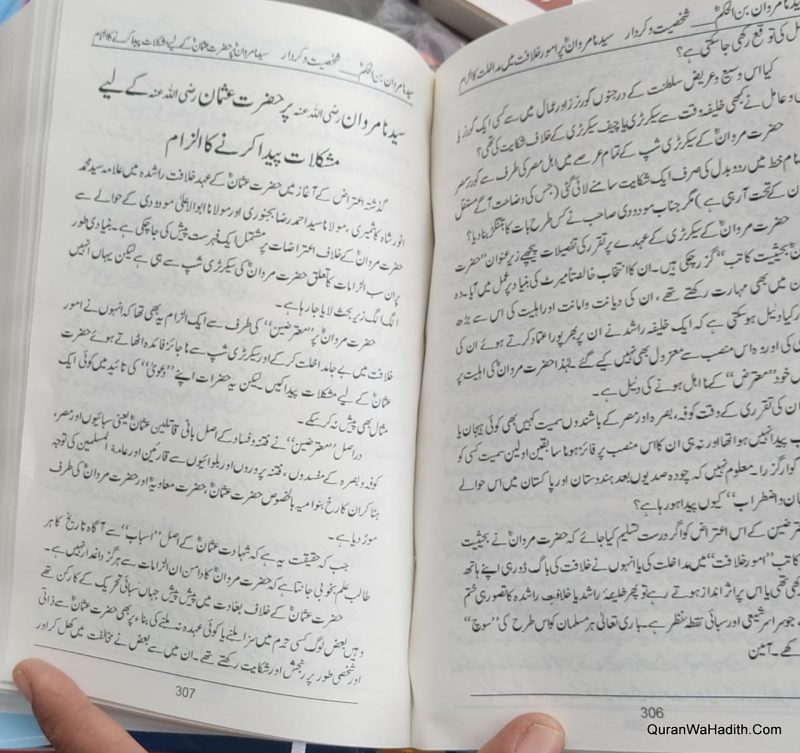 سیدنا مروان بن الحکمؓ ___ شخصیت و کردار سیدنا مروانؓ پر امور خلافت میں مداخلت کا الزام
کی توقع رکھی جا سکتی ہے؟
کیا اس وسیع و عریض سلطنت کے درجنوں گورنرز اور عمال میں سے کسی ایک گورنر یا
و عامل نے کبھی خلیفہ وقت سے سیکرٹری یا چیف سیکرٹری کے خلاف شکایت کی تھی؟
حضرت مروانؓ کے سیکرٹری شپ کے تمام عرصے میں اہل مصر کی طرف سے گورنر مصر
نام خط میں ردو بدل کی صرف ایک شکایت سامنے لائی گئی (جس کی وضاحت آگے مستقل
کے تحت آ رہی ہے) مگر جناب مودودی صاحب نے کس طرح بات کا بتنگڑ بنا دیا؟
حضرت مروانؓ کے سیکرٹری کے عہدے پر تقرر کی تفصیلات پیچھے زیر عنوان ”حضرت
بحیثیت کاتب“ گزر چکی ہیں۔ ان کا انتخاب خالصتاً میرٹ کی بنیاد پر عمل میں آیا۔ وہ
میں بھی مہارت رکھتے تھے، ان کی دیانت و امانت اور اہلیت کی اس سے بڑھ
کر کیا دلیل ہو سکتی ہے کہ ایک خلیفہ راشد نے ان پر بھرپور اعتماد کرتے ہوئے ان کی
کی اور وہ اس منصب سے معزول بھی نہیں کیے گئے۔ لہٰذا حضرت مروانؓ کی اہلیت پر
خود ”معترض“ کے نا اہل ہونے کی دلیل ہے۔
ان کی تقرری کے وقت کوفہ، بصرہ اور مصر کے باشندوں سمیت کہیں بھی کوئی ہیجان یا
پیدا نہیں ہوا تھا اور نہ ہی ان کا اس منصب پر فائز ہونا سابقین اولین سمیت کسی کو
گوار گزرا۔ معلوم نہیں کہ چودہ صدیوں بعد ہندوستان اور پاکستان میں اس حوالے
و اضطراب“ کیوں پیدا ہو رہا ہے؟
معترضین کے اس اعتراض کو اگر درست تسلیم کیا جائے کہ حضرت مروانؓ نے بحیثیت
کاتب ”امور خلافت“ میں مداخلت کی یا انہوں نے خلافت کی باگ ڈور ہی اپنے ہاتھ
رکھی تھی یا اس پر اثر انداز ہوتے رہے تو پھر خلیفہ راشد یا خلافت راشدہ کا تصور ہی ختم
ہے جو سراسر شیعی اور سبائی نقطہ نظر ہے۔ باری تعالیٰ ہر مسلمان کو اس طرح کی ”سوچ“
رکھے۔ آمین
306
سیدنا مروان بن الحکمؓ ___ شخصیت و کردار سیدنا مروانؓ پر حضرت عثمانؓ کے لیے مشکلات پیدا کرنے کا الزام
سیدنا مروان رضی اللہ عنہ پر حضرت عثمان رضی اللہ عنہ کے لیے
مشکلات پیدا کرنے کا الزام
گذشتہ اعتراض کے آغاز میں حضرت عثمانؓ کے عہد خلافت راشدہ میں علامہ سید محمد
انور شاہ کاشمیری، مولانا سید احمد رضا بجنوری اور مولانا ابوالاعلیٰ مودودی کے حوالے سے
حضرت مروانؓ کے خلاف اعتراضات پر مشتمل ایک فہرست پیش کی جا چکی ہے۔ بنیادی طور
پر ان سب الزامات کا تعلق حضرت مروانؓ کی سیکرٹری شپ سے ہی ہے لیکن یہاں انہیں
الگ الگ زیر بحث لایا جا رہا ہے۔
حضرت مروانؓ پر ”معترضین“ کی طرف سے ایک الزام یہ بھی تھا کہ انہوں نے امور
خلافت میں بے جا مداخلت کر کے اور سیکرٹری شپ سے ناجائز فائدہ اٹھاتے ہوئے حضرت
عثمانؓ کے لیے مشکلات پیدا کیں۔ لیکن یہ حضرات اپنے ”دعویٰ“ کی تائید میں کوئی ایک
مثال بھی پیش نہ کر سکے۔
دراصل ”معترضین“ نے فتنہ و فساد کے اصل بانی قاتلین عثمانؓ یعنی سبائیوں اور مصر،
کوفہ و بصرہ کے مفسدوں، فتنہ پروروں اور بلوائیوں سے قارئین اور عامۃ المسلمین کی توجہ
ہٹا کر ان کا رخ بنو امیہ بالخصوص حضرت عثمانؓ، حضرت معاویہؓ اور حضرت مروانؓ کی طرف
موڑ دیا ہے۔
جب کہ حقیقت یہ ہے کہ شہادت عثمانؓ کے اصل ”اسباب“ سے آگاہ تاریخ کا ہر
طالب علم بخوبی جانتا ہے کہ حضرت مروانؓ کا دامن ان الزامات سے ہرگز داغدار نہیں ہے۔
حضرت عثمانؓ کے خلاف بغاوت میں پیش پیش جہاں سبائی تحریک کے کارکن تھے
وہیں بعض لوگ کسی جرم میں سزا ملنے یا کوئی عہدہ نہ ملنے کی بناء پر بھی حضرت عثمانؓ سے ذاتی
اور شخصی طور پر رنجش اور شکایت رکھتے تھے۔ ان میں سے بعض نے مخالفت میں کھل کر اور
307
QuranWaHadith.Com